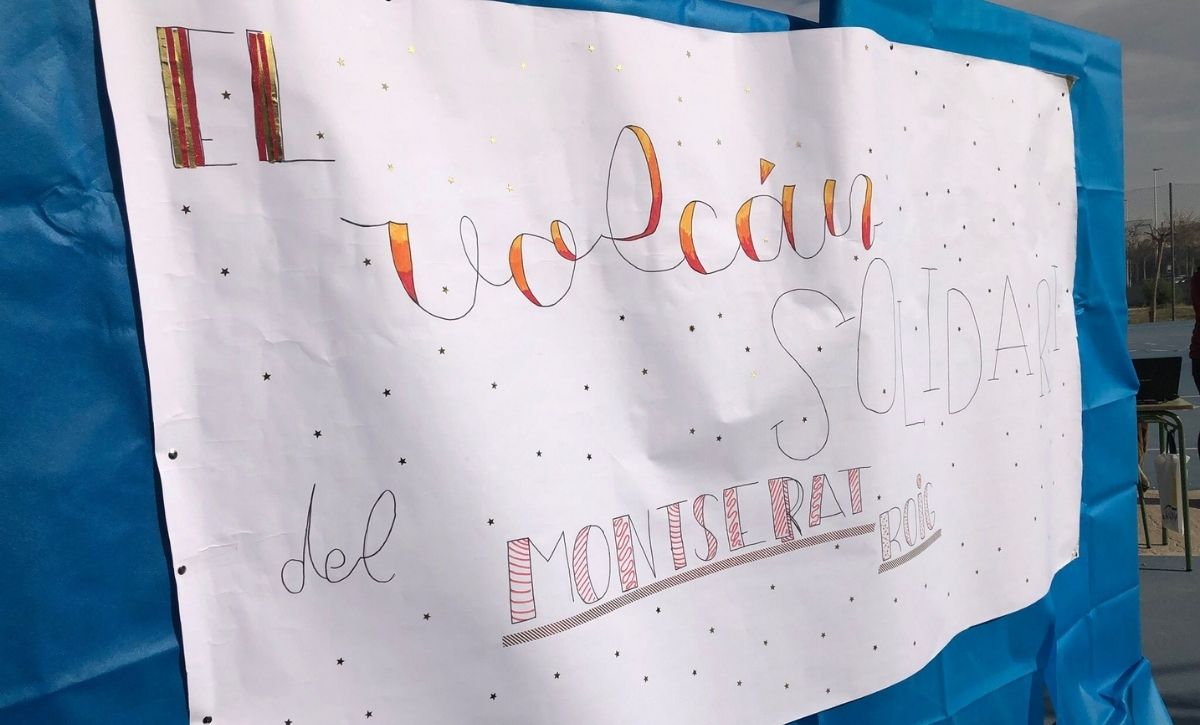 EL
volcán
SOLIDARI
del MONTSERRAT ROIG